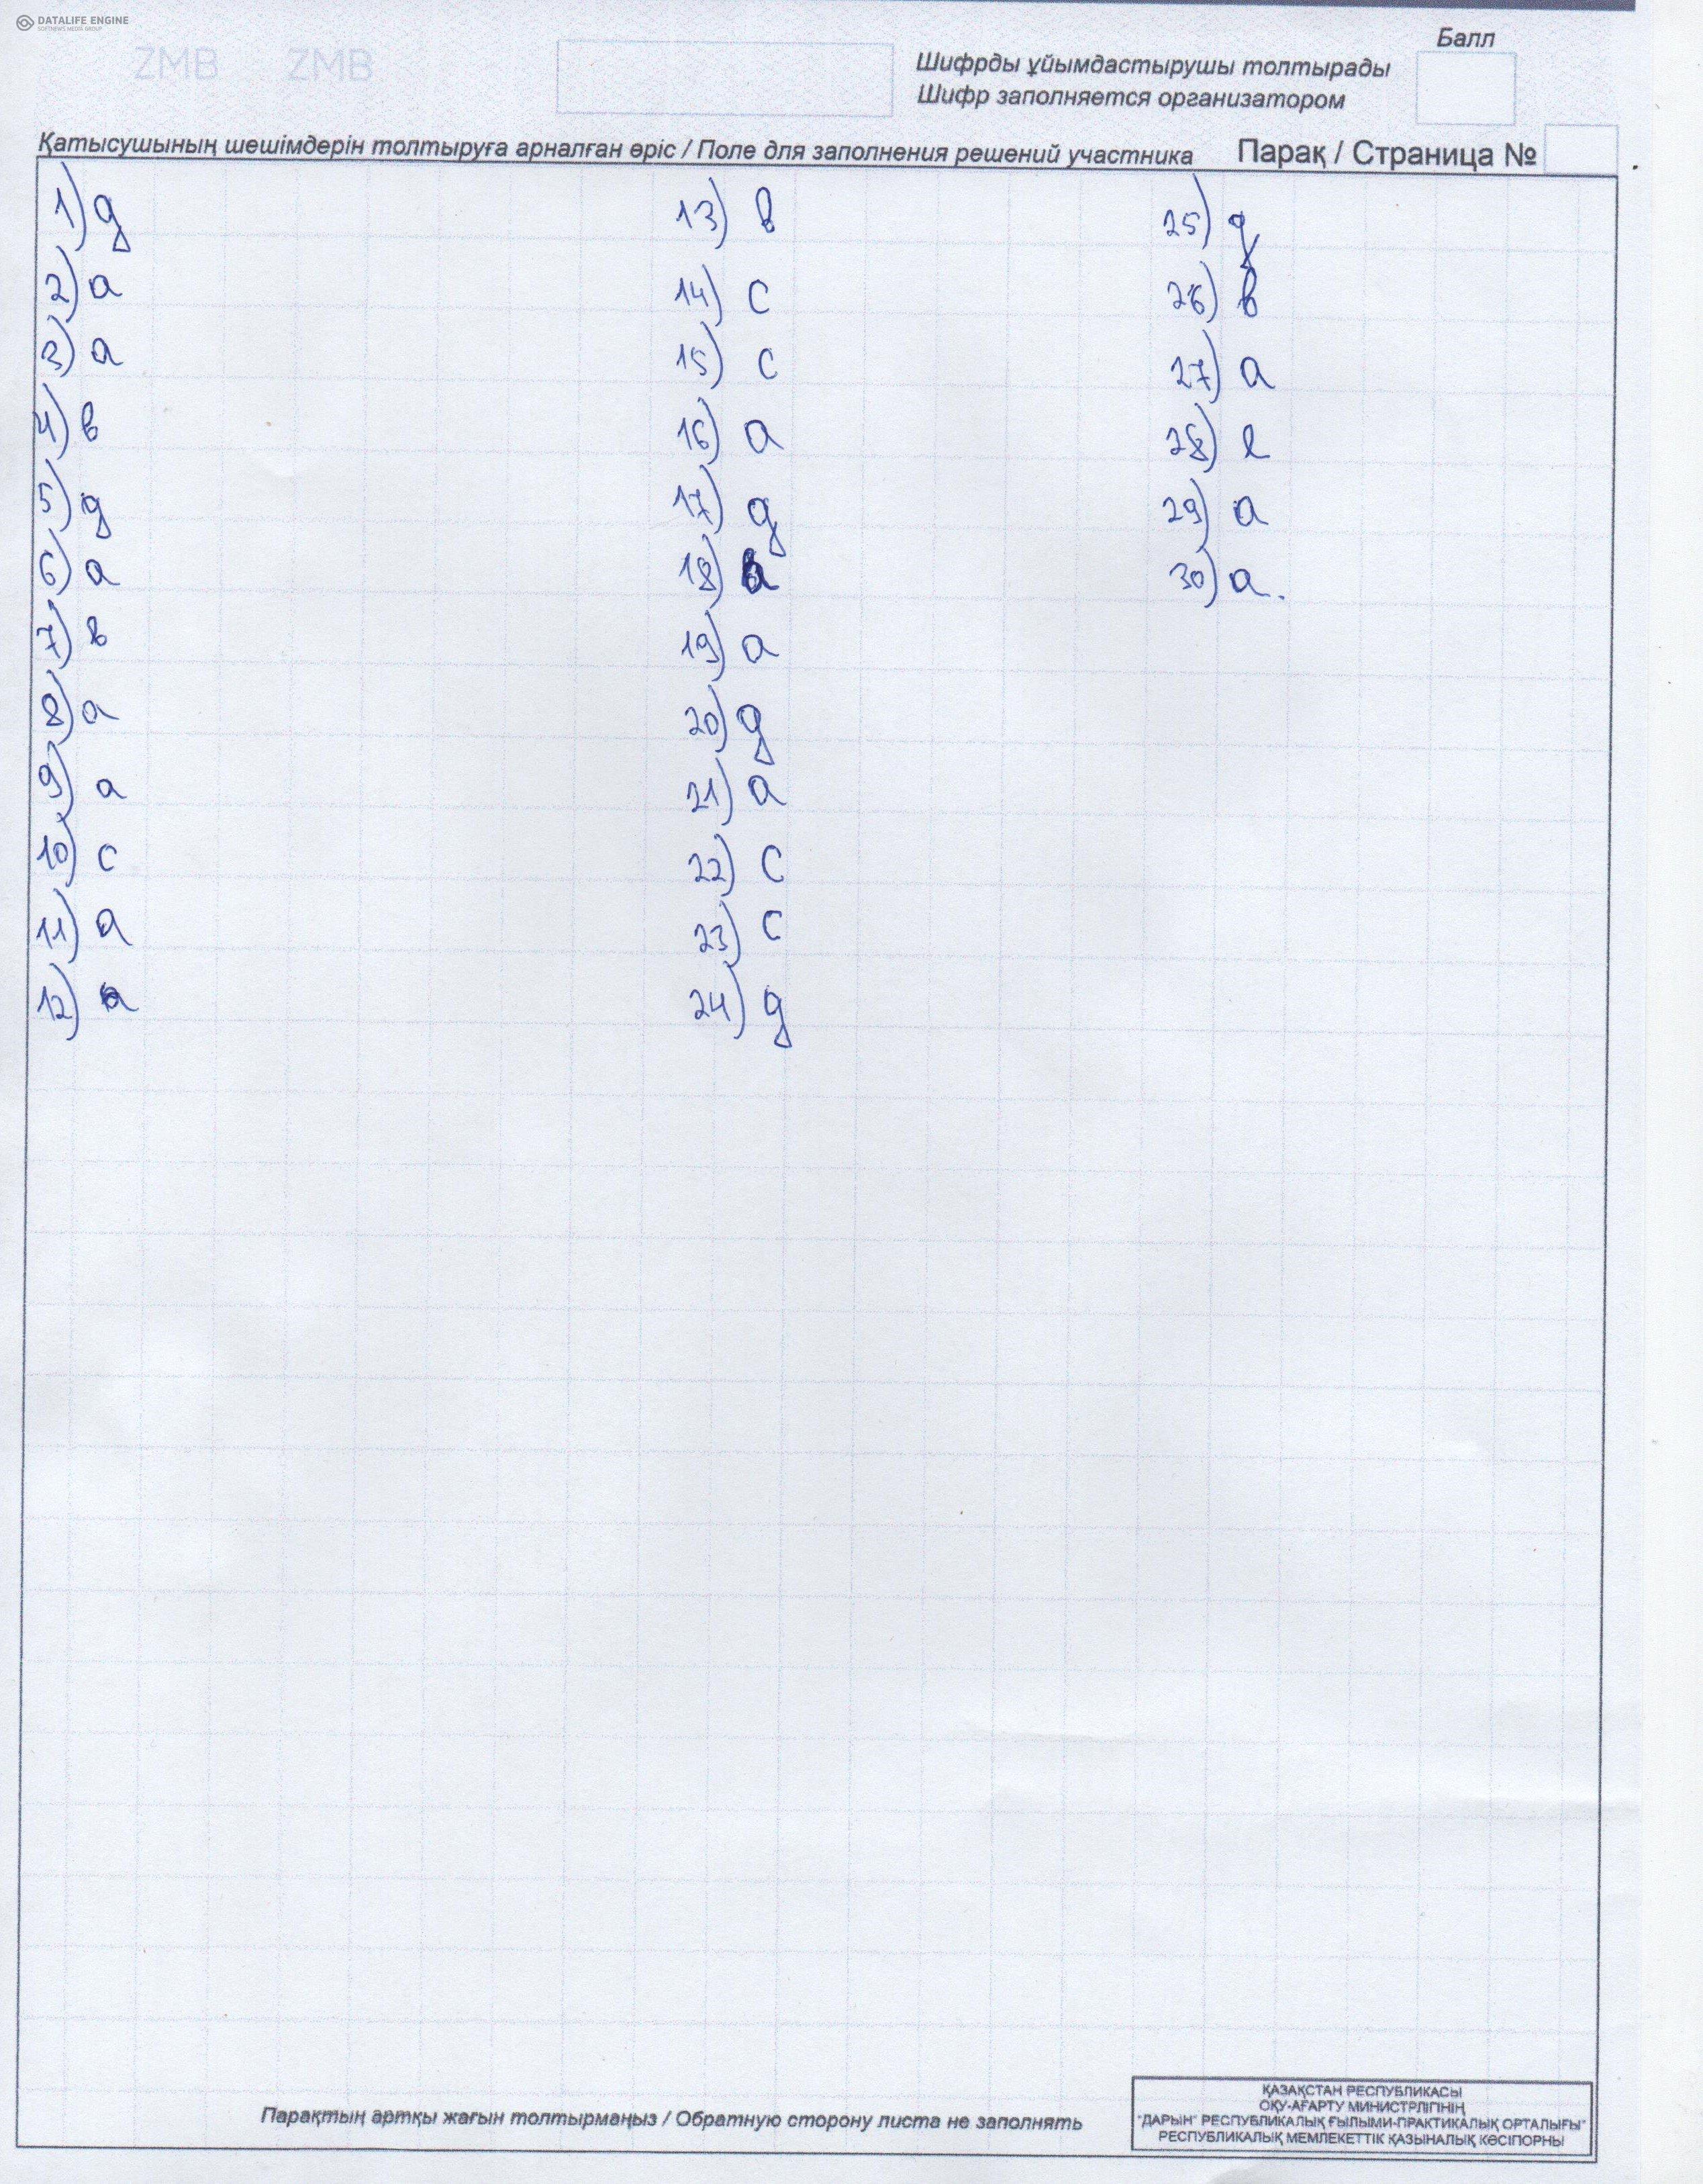 DATALIFE ENGINE
SOFTNEWS MEDIA GROUP
ZMB ZMB
Балл
Шифрды ұйымдастырушы толтырады
Шифр заполняется организатором
Қатысушының шешімдерін толтыруға арналған өріс / Поле для заполнения решений участника Парақ / Страница №
1) g
2) a
3) a
4) в
5) g
6) a
7) в
8) a
9) a
10) c
11) a
12) a
13) в
14) c
15) c
16) a
17) g
18)
19) a
20) g
21) a
22) c
23) c
24) g
25) g
26) в
27) a
28) e
29) a
30) a.
Парақтың артқы жағын толтырмаңыз / Обратную сторону листа не заполнять
ҚАЗАҚСТАН РЕСПУБЛИКАСЫ
ОҚУ-АҒАРТУ МИНИСТРЛІГІНІҢ
"ДАРЫН" РЕСПУБЛИКАЛЫҚ ҒЫЛЫМИ-ПРАКТИКАЛЫҚ ОРТАЛЫҒЫ"
РЕСПУБЛИКАЛЫҚ МЕМЛЕКЕТТІК ҚАЗЫНАЛЫҚ КӘСІПОРНЫ